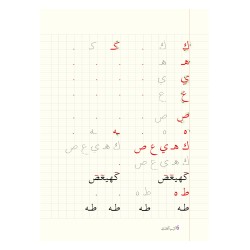 ك ك ك ك
هـ هـ
ي ي
ع ع
ص ص
ه ه ه ه
ك هـ ي ع ص ك هـ ي ع ص
ك هـ ي ع ص
كهيعص كهيعص
ط ه ط ه
طه طه طه طه